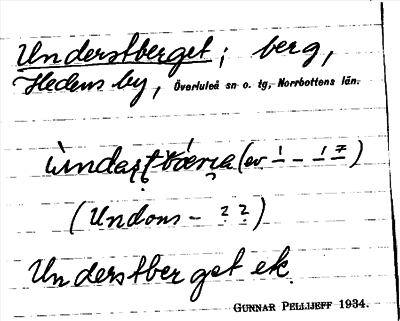 Understberget; berg,
Hedens by, Överluleå sn o. tg, Norrbottens län.
(Undons - ? ?)
Understberget ek.
GUNNAR PELLIJEFF 1934.